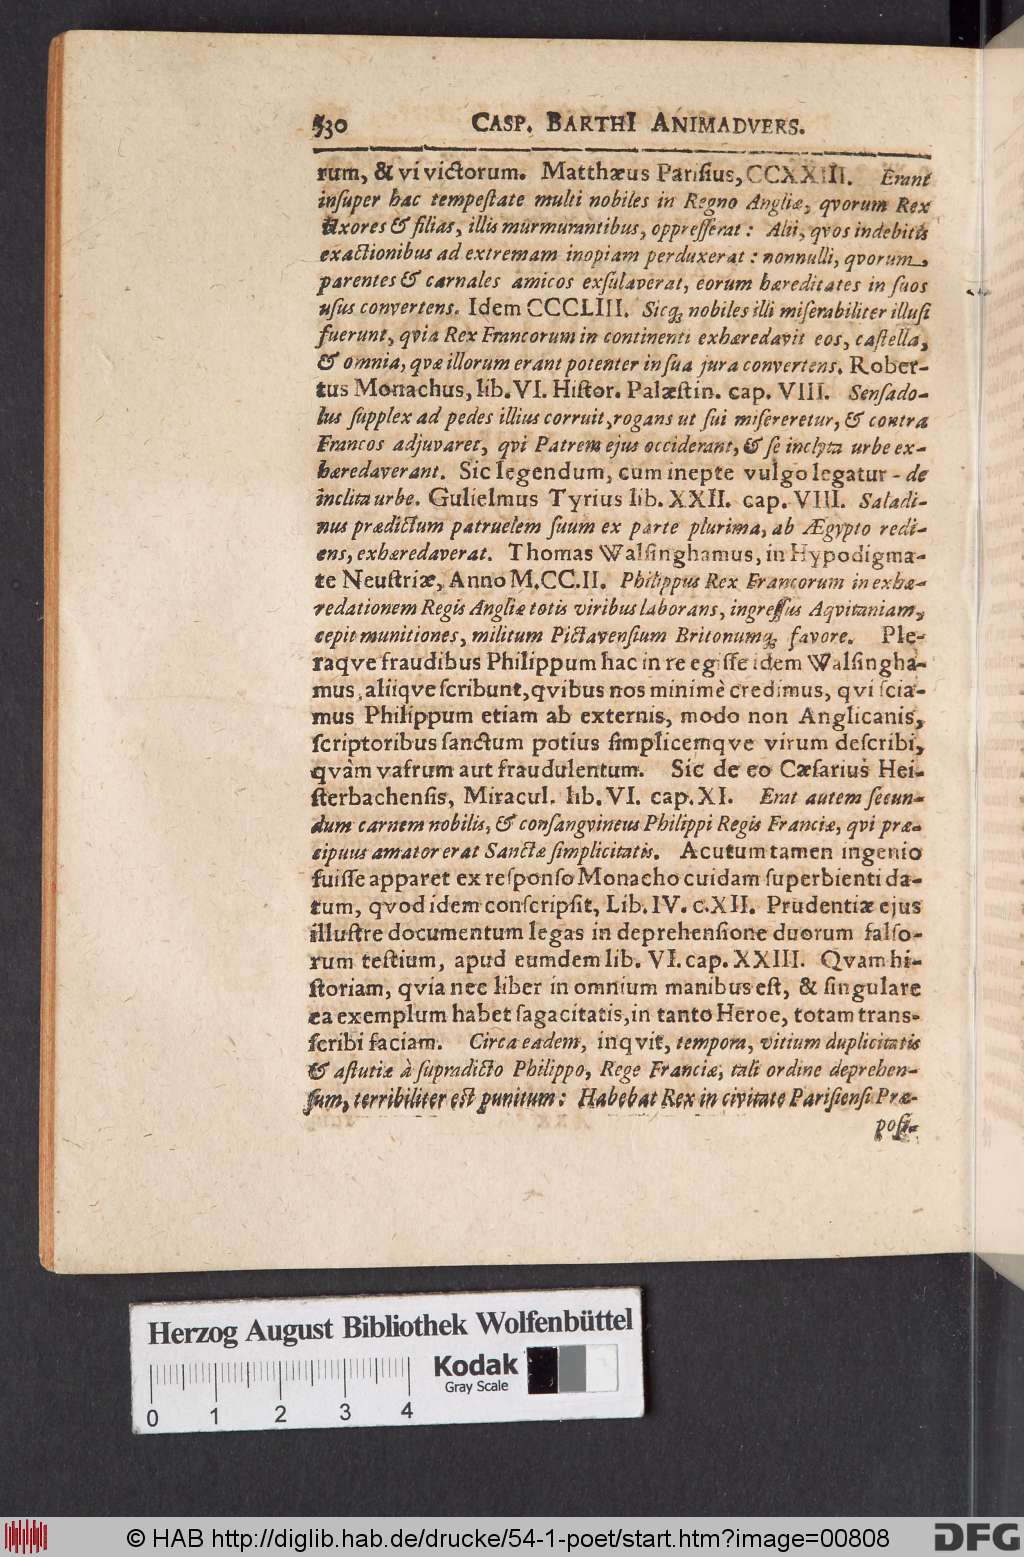 530 CASP. BARTHI ANIMADVERS.
rum, & vi victorum. Matthæus Parisius, CCXXIII. Erant
insuper hac tempestate multi nobiles in Regno Angliæ, qvorum Rex
Uxores & filias, illis murmurantibus, oppresserat: Alii, qvos indebitis
exactionibus ad extremam inopiam perduxerat: nonnulli, qvorum
parentes & carnales amicos exsulaverat, eorum hæreditates in suos
usus convertens. Idem CCCLIII. Sicq; nobiles illi miserabiliter illusi
fuerunt, qvia Rex Francorum in continenti exhæredavit eos, castella,
& omnia, qvæ illorum erant potenter in sua jura convertens. Rober-
tus Monachus, lib. VI. Histor. Palæstin. cap. VIII. Sensado-
lus supplex ad pedes illius corruit, rogans ut sui misereretur, & contra
Francos adjuvaret, qvi Patrem ejus occiderant, & se inclyta urbe ex-
hæredaverant. Sic legendum, cum inepte vulgo legatur - de
inclita urbe. Gulielmus Tyrius lib. XXII. cap. VIII. Saladi-
nus prædictum patruelem suum ex parte plurima, ab Ægypto redi-
ens, exhæredaverat. Thomas Walsinghamus, in Hypodigma-
te Neustriæ, Anno M.CC.II. Philippus Rex Francorum in exhæ-
redationem Regis Angliæ totis viribus laborans, ingressus Aqvitaniam,
cepit munitiones, militum Pictavensium Britonumq; favore. Ple-
raqve fraudibus Philippum hac in re egisse idem Walsingha-
mus, aliiqve scribunt, qvibus nos minimè credimus, qvi scia-
mus Philippum etiam ab externis, modo non Anglicanis,
scriptoribus sanctum potius simplicemqve virum describi,
qvàm vafrum aut fraudulentum. Sic de eo Cæsarius Hei-
sterbachensis, Miracul. lib. VI. cap. XI. Erat autem secun-
dum carnem nobilis, & consangvineus Philippi Regis Franciæ, qvi præ-
cipuus amator erat Sanctæ simplicitatis. Acutum tamen ingenio
fuisse apparet ex responso Monacho cuidam superbienti da-
tum, qvod idem conscripsit, Lib. IV. c. XII. Prudentiæ ejus
illustre documentum legas in deprehensione duorum falso-
rum testium, apud eumdem lib. VI. cap. XXIII. Qvam hi-
storiam, qvia nec liber in omnium manibus est, & singulare
ea exemplum habet sagacitatis, in tanto Heroe, totam trans-
scribi faciam. Circa eadem, inqvit, tempora, vitium duplicitatis
& astutiæ à supradicto Philippo, Rege Franciæ, tali ordine deprehen-
sum, terribiliter est punitum: Habebat Rex in civitate Parisiensi Præ-
posi-
Herzog August Bibliothek Wolfenbüttel
Kodak
Gray Scale
0 1 2 3 4
© HAB http://diglib.hab.de/drucke/54-1-poet/start.htm?image=00808
DFG